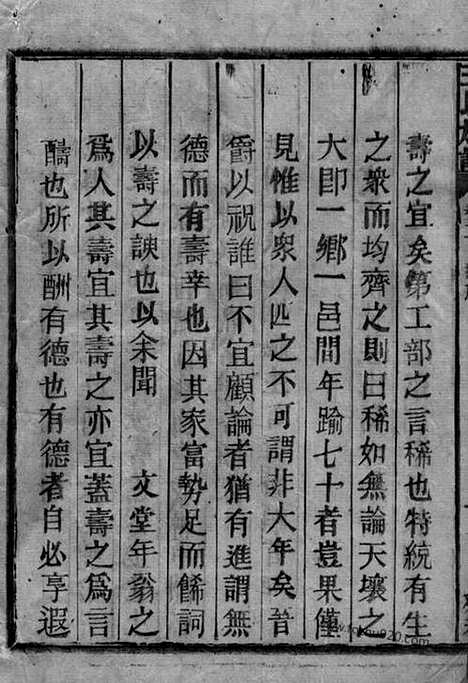 壽之宜矣第工部之言稀也特統有生
之衆而均齊之則曰稀如無論天壤之
大卽一鄉一邑間年踰七十者豈果僅
見惟以衆人匹之不可謂非大年矣昔
爵以祝誰曰不宜顧論者猶有進謂無
德而有壽幸也因其家富勢足而餙詞
以壽之諛也以余聞 文堂年翁之
爲人其壽宜其壽之亦宜蓋壽之爲言
醻也所以酬有德也有德者自必享遐